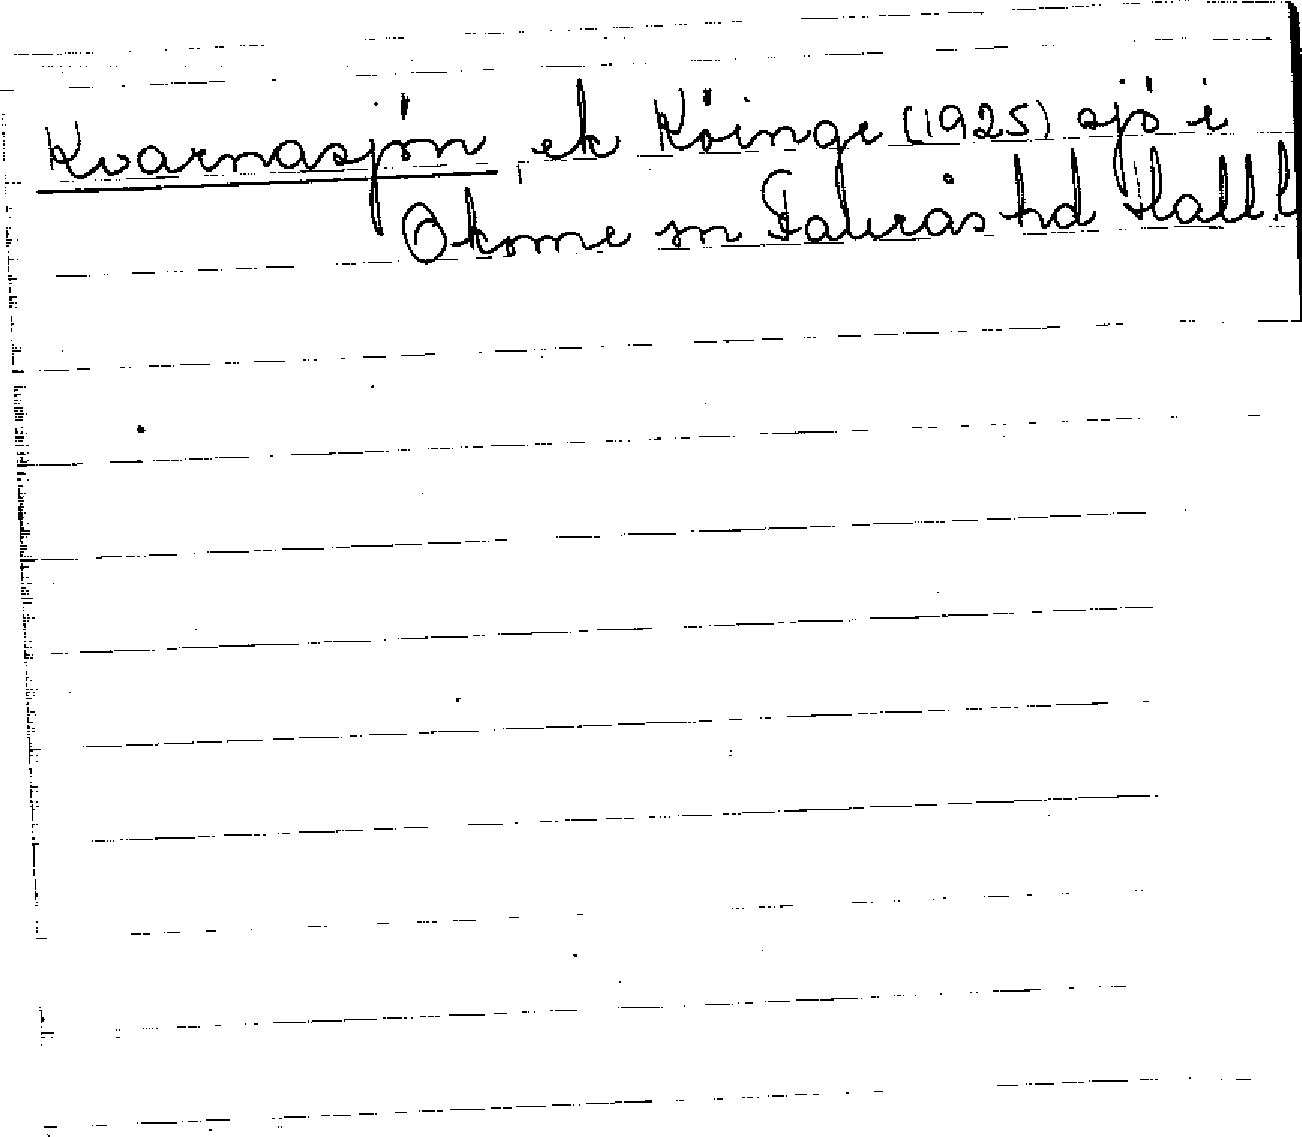 Kvarnasjön, ek Köinge (1925) sjö i
Okome sn Faurås hd Hall.l